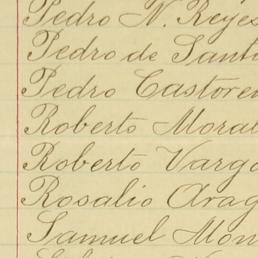 Pedro N. Reyes
Pedro de Santi
Pedro Castore
Roberto Moral
Roberto Varga
Rosalio Arag
Samuel Mon